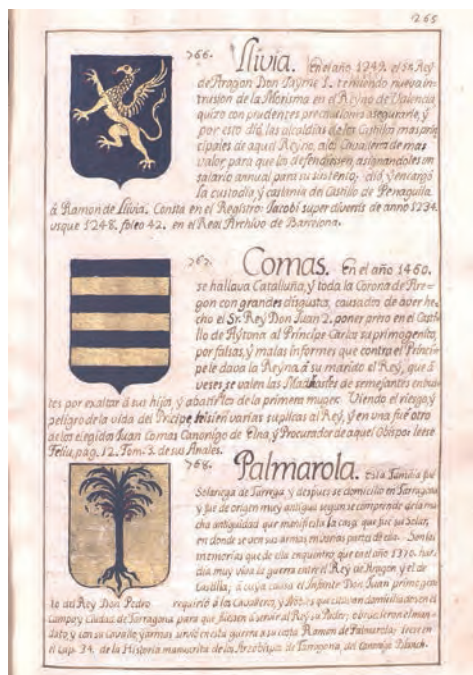 265
766. Llivia. En el año 1249. el Sr. Rey
de Aragon Don Jayme I. temiendo nueva in-
trusion de la Morisma en el Reyno de Valencia,
quizo con prudentes precauciones asegurarse, y
por esto dió las alcaldias de los Castillos mas prin-
cipales de aquel Reyno, a los Cavalleros de mas
valor para que los defendiesen, asignandoles un
salario annual para su sustento; dió, y encargó
la custodia, y castlania del Castillo de Penaguila
á Ramon de Llivia. Consta en el Registro: Jacobi super diversis de anno 1234.
usque 1248. foleo 42. en el Real Archivo de Barcelona.
767. Comas. En el año 1460.
se hallava Catalluña, y toda la Corona de Ara-
gon con grandes disgustos, causados de aver he-
cho el Sr. Rey Don Juan 2. poner preso en el Casti-
llo de Aytona al Principe Carlos su primogenito,
por falsas, y malas informes que contra el Princi-
pe le dava la Reyna, á su marido el Rey, que á
veses se valen las Madrastas de semejantes enbus-
tes por exaltar á sus hijos, y abatir los de la primera muger. Viendo el riesgo, y
peligro de la vida del Pricipe, hisieron varias suplicas al Rey, y en una fue otro
de los elegidos Juan Comas Canonigo de Elna, y Procurador de aquel Obispo: leese
Feliu, pag. 12. Tom. 3. de sus Anales.
768. Palmarola. Esta Familia fué
Solariega de Tarrega y despues se domicilio en Tarragona
y fue de origen muy antiguo segun se comprende de la mu-
cha antiguedad que manifiesta la casa que fue su Solar,
en donde se ven sus armas en varias partes de ella. Son las
memorias que de ella encuentro que en el año 1370. hav-
dia muy viva la guerra entre el Rey de Aragon y el de
Castilla; á cuya causa el Infante Don Juan primogeni-
to del Rey Don Pedro requirió á los Cavalleros, y Nobles que estavan domiciliados en el
Campo y Ciudad de Tarragona para que fuesen á servir al Rey su Padre; obedecieron el man-
dato y con su Cavallo, y armas sirvió en esta guerra a su costa Ramon de Palmarola; leese en
el cap. 34. de la Historia manuscrita de los Arzobispos de Tarragona, del Canonigo Blanch.